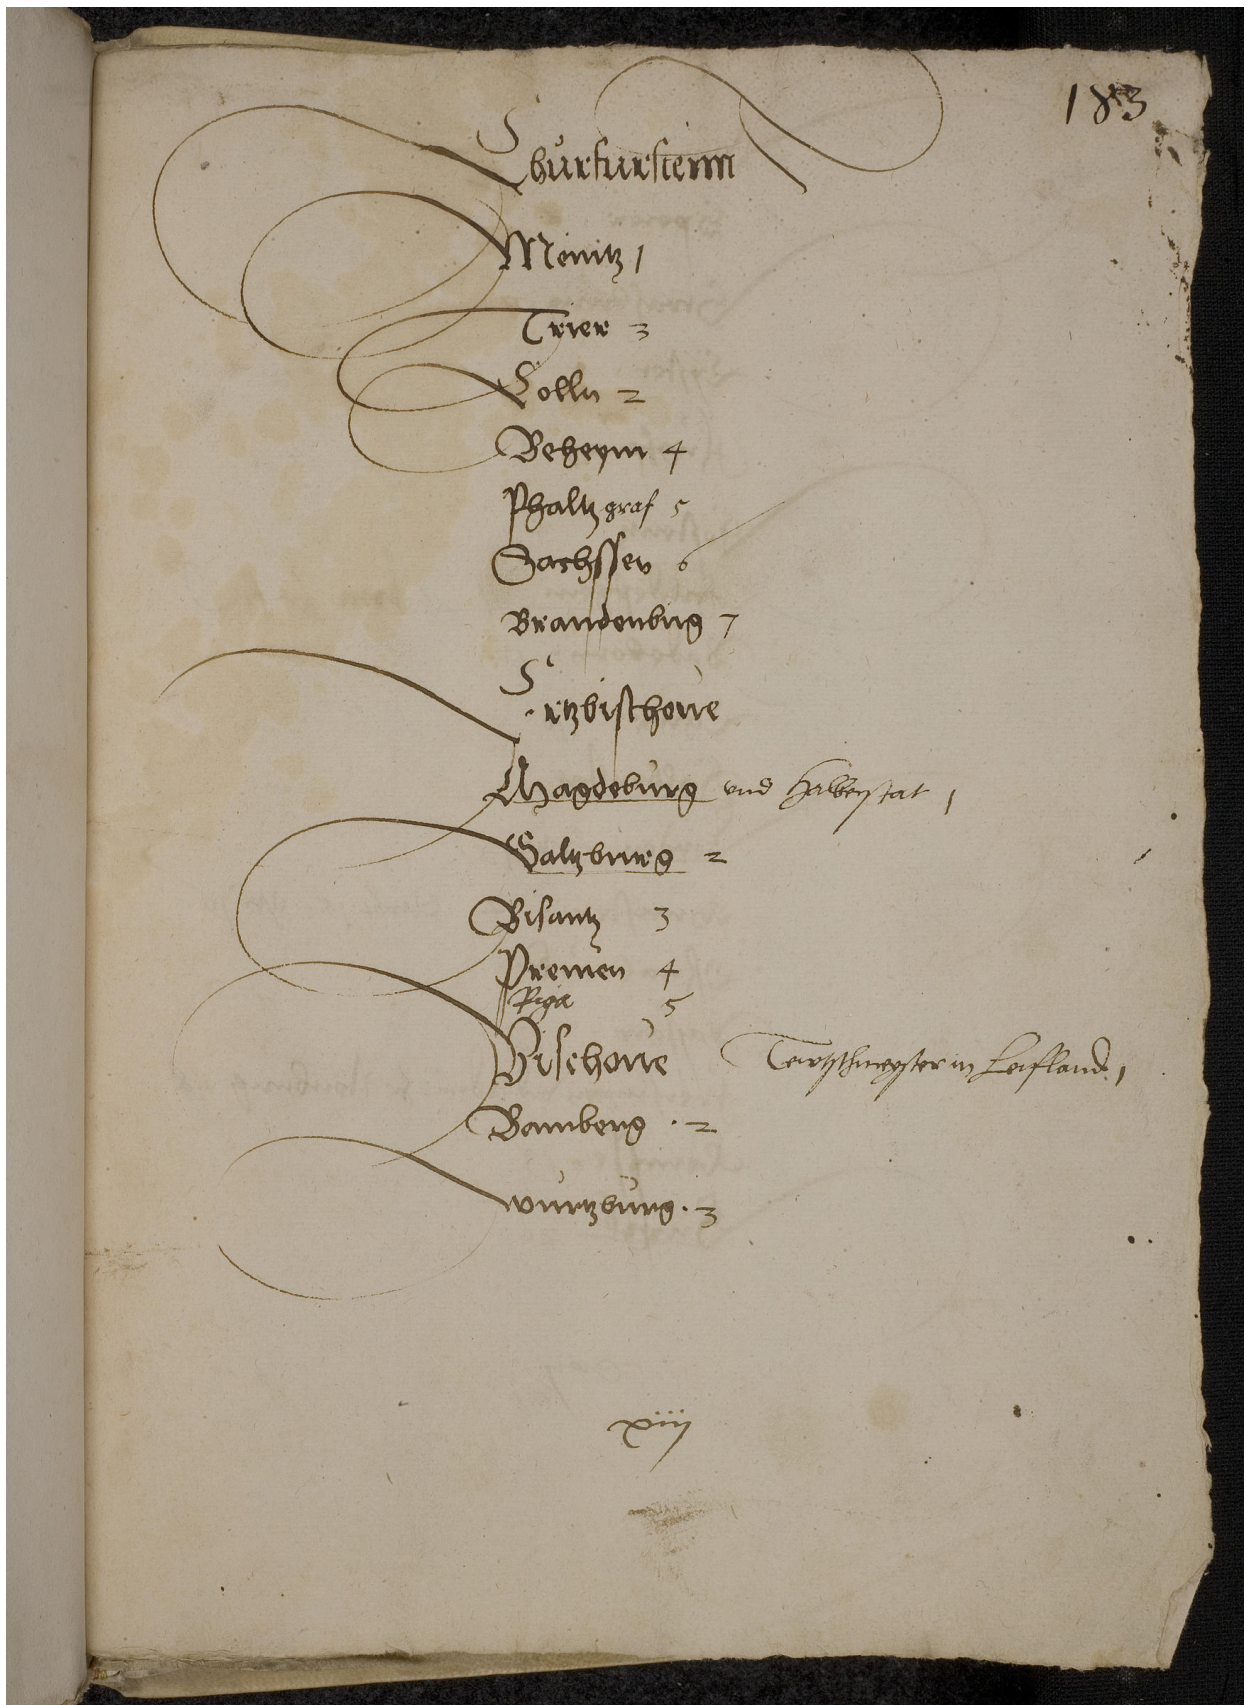 183
Churfurstenn
Meintz 1
Trier 3
Colln 2
Beheym 4
Phaltzgraf 5
Sachssen 6
Brandenburg 7
Ertzbischoue
Magdeburg und Halberstat 1
Saltzburg 2
Bisantz 3
Premen 4
Riga 5
Bischoue Teutschmeyster in Leifland 1
Bamberg 2
wurtzburg 3
xiij